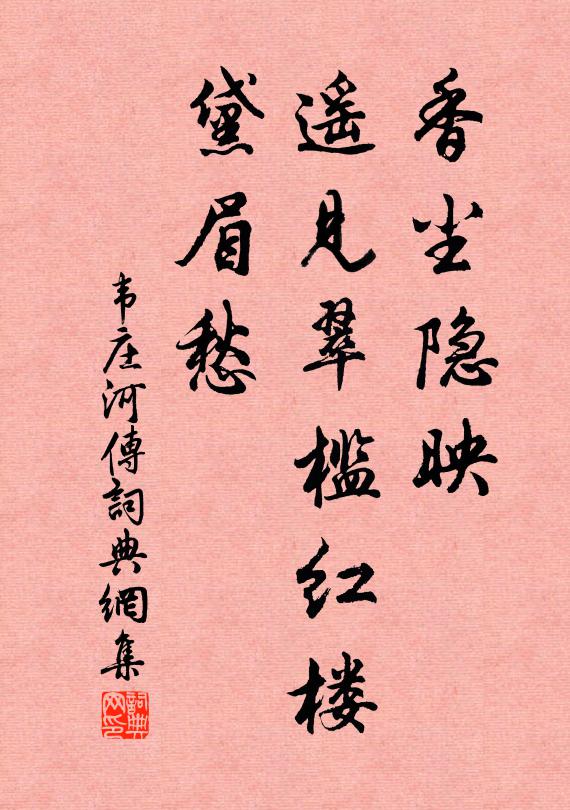 香尘隐映
遥见翠槛红楼
黛眉愁
韦庄河傳詞典網集
詞典网印